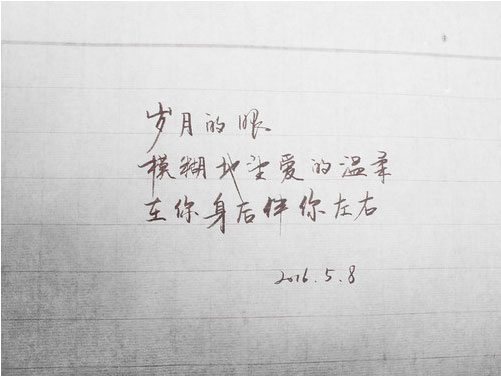 岁月的眼
模糊地望爱的温柔
在你身后伴你左右
2016.5.8